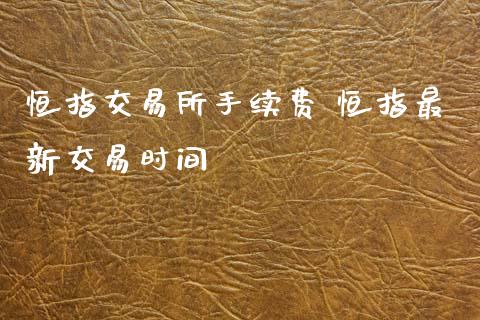 恒指交易所手续费 恒指最
新交易时间